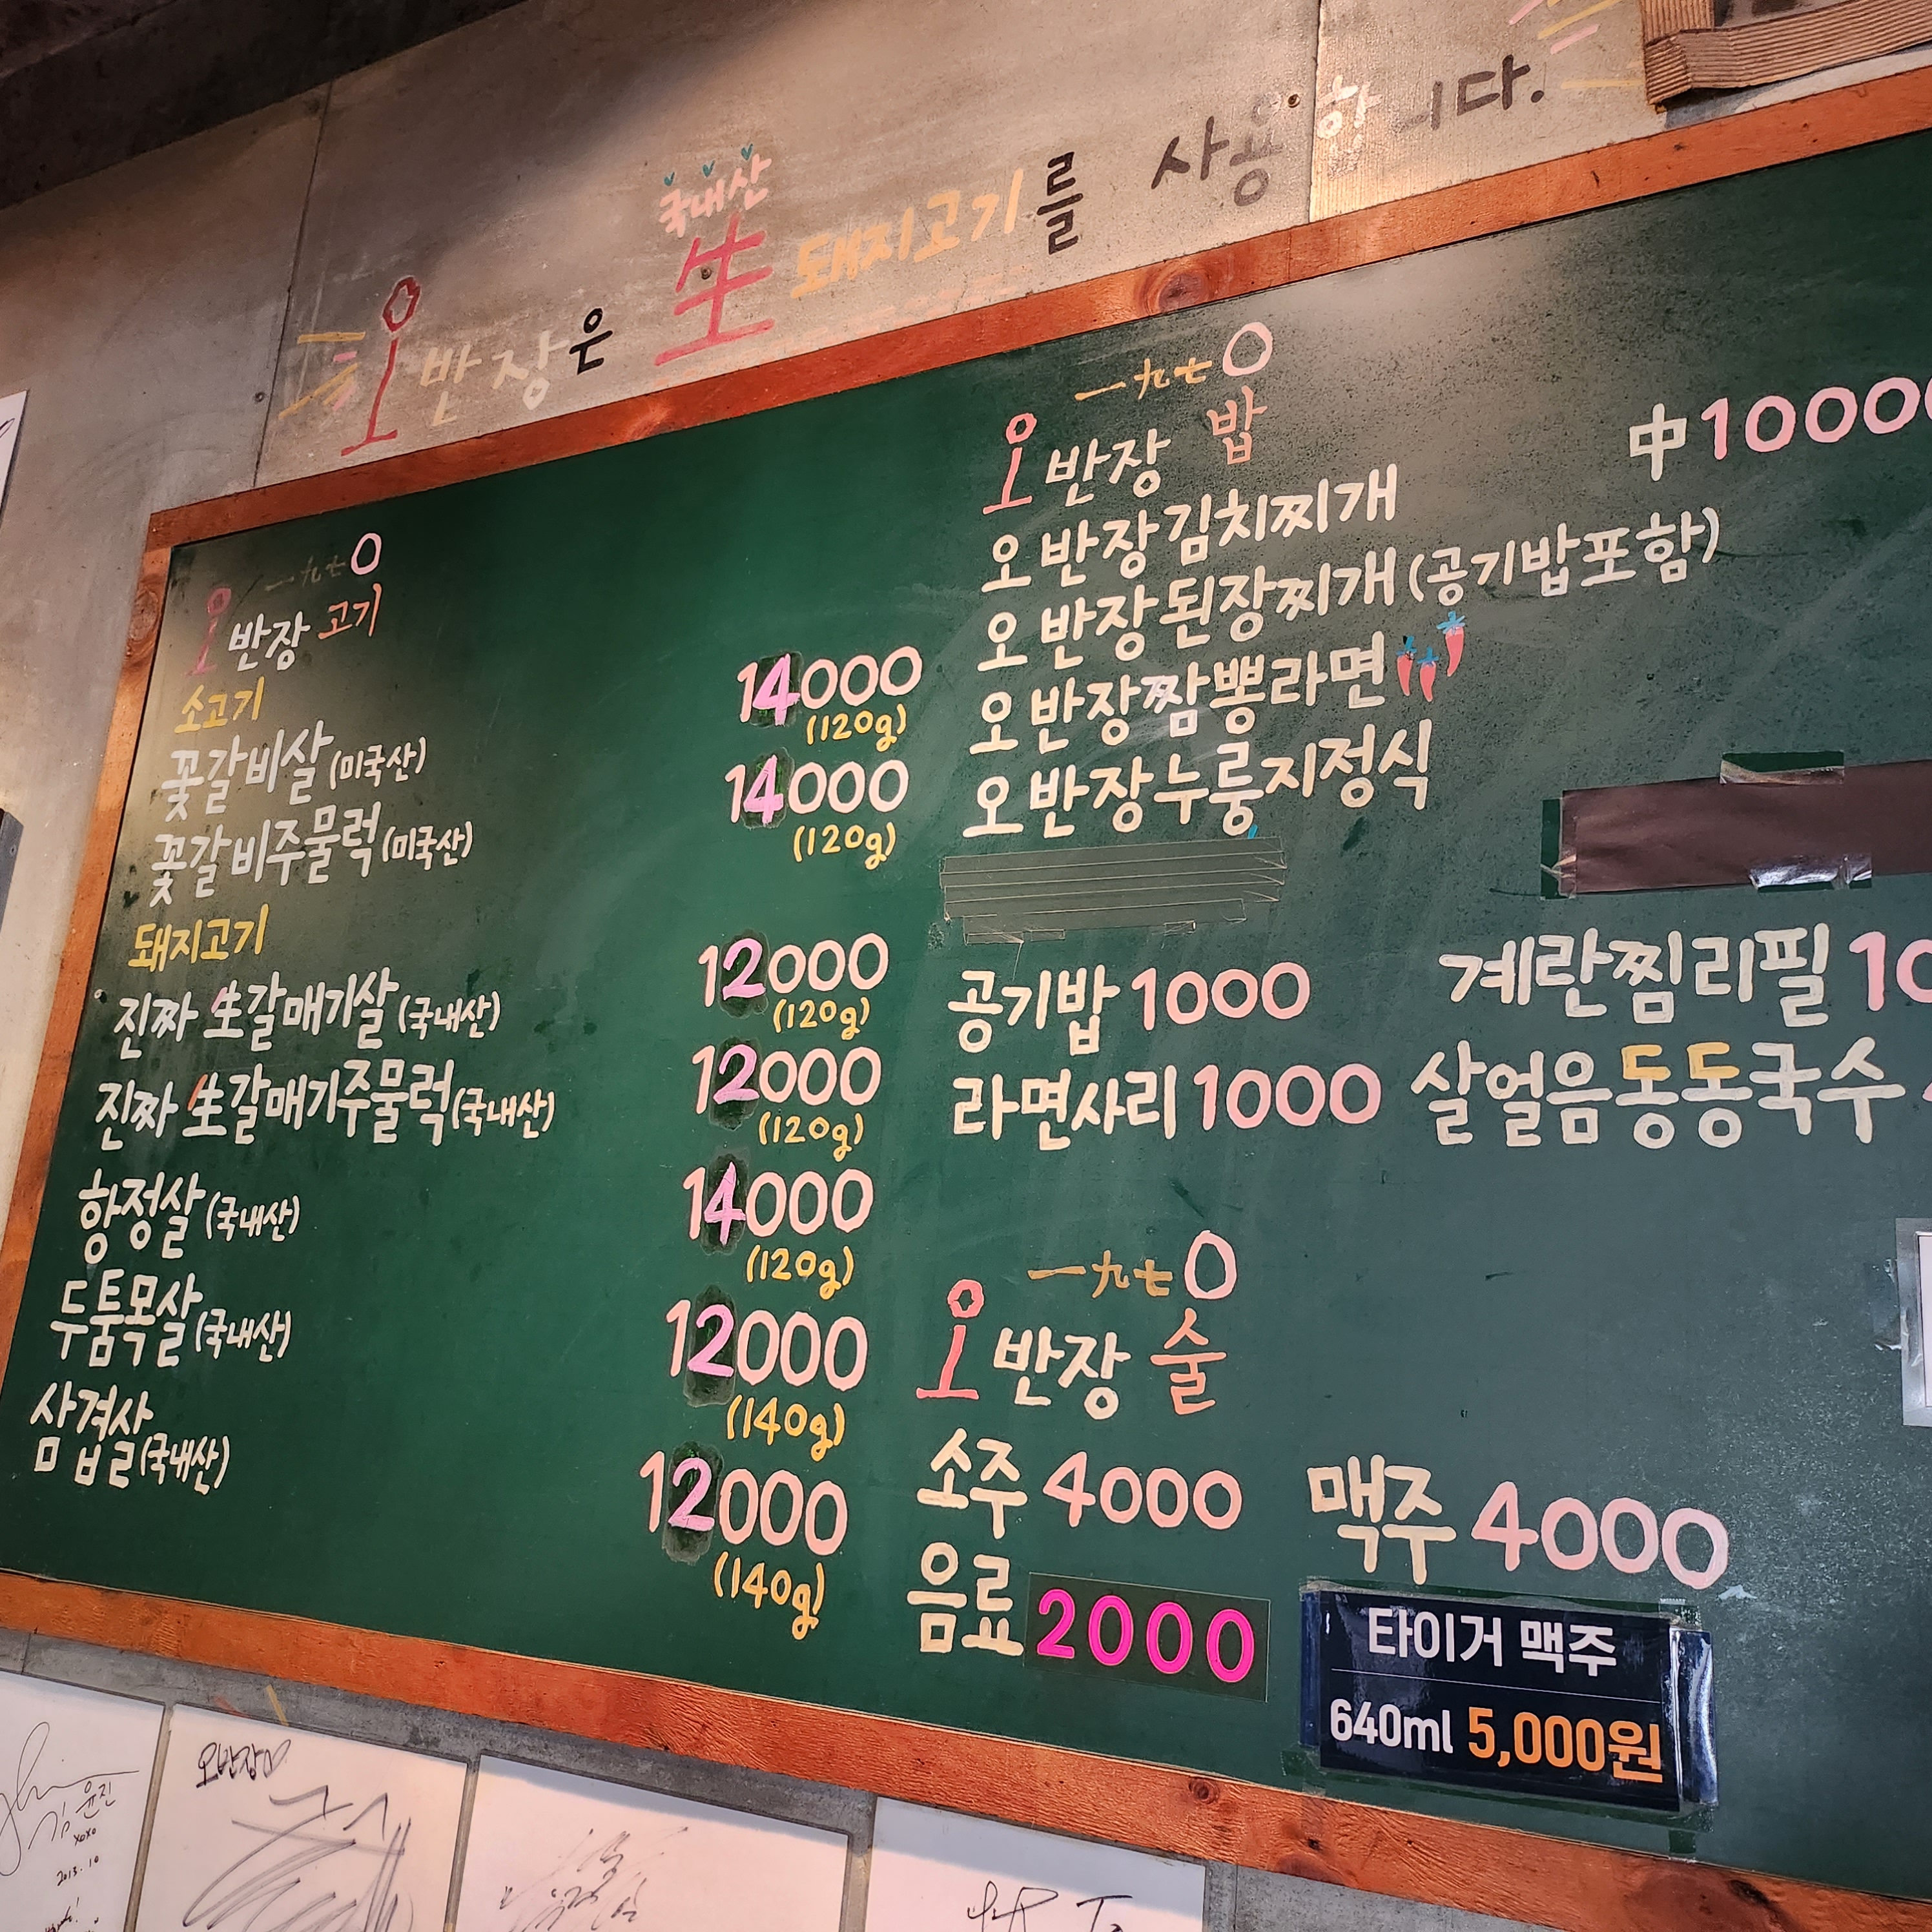 오반장은 국내산 生 돼지고기를 사용합니다.
一九七0
오반장 고기
소고기
꽃갈비살(미국산) 14000
(120g)
꽃갈비주물럭(미국산) 14000
(120g)
돼지고기
진짜 生갈매기살(국내산) 12000
(120g)
진짜 生갈매기주물럭(국내산) 12000
(120g)
항정살(국내산) 14000
(120g)
두툼목살(국내산) 12000
(140g)
삼겹살(국내산) 12000
(140g)
一九七0
오반장 밥
오반장김치찌개 中10000
오반장된장찌개(공기밥포함)
오반장짬뽕라면
오반장누룽지정식
공기밥 1000 계란찜리필 10
라면사리 1000 살얼음동동국수
一九七0
오반장 술
소주 4000 맥주 4000
음료 2000
타이거 맥주
640ml 5,000원
윤진
xoxo
2013.10
오반장